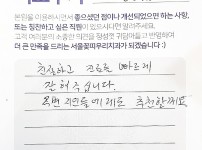 본원을 이용하시면서 좋으셨던 점이나 개선되었으면 하는 사항,
또는 칭찬하고 싶은 직원이 있으시다면 알려주세요.
고객 여러분의 소중한 의견을 정성껏 귀담아듣고 반영하여
더 큰 만족을 드리는 서울꽃피우리치과가 되겠습니다 :)
친절하고 진료를 빠르게
잘 해 주십니다.
주변 지인들에게도 추천할께요